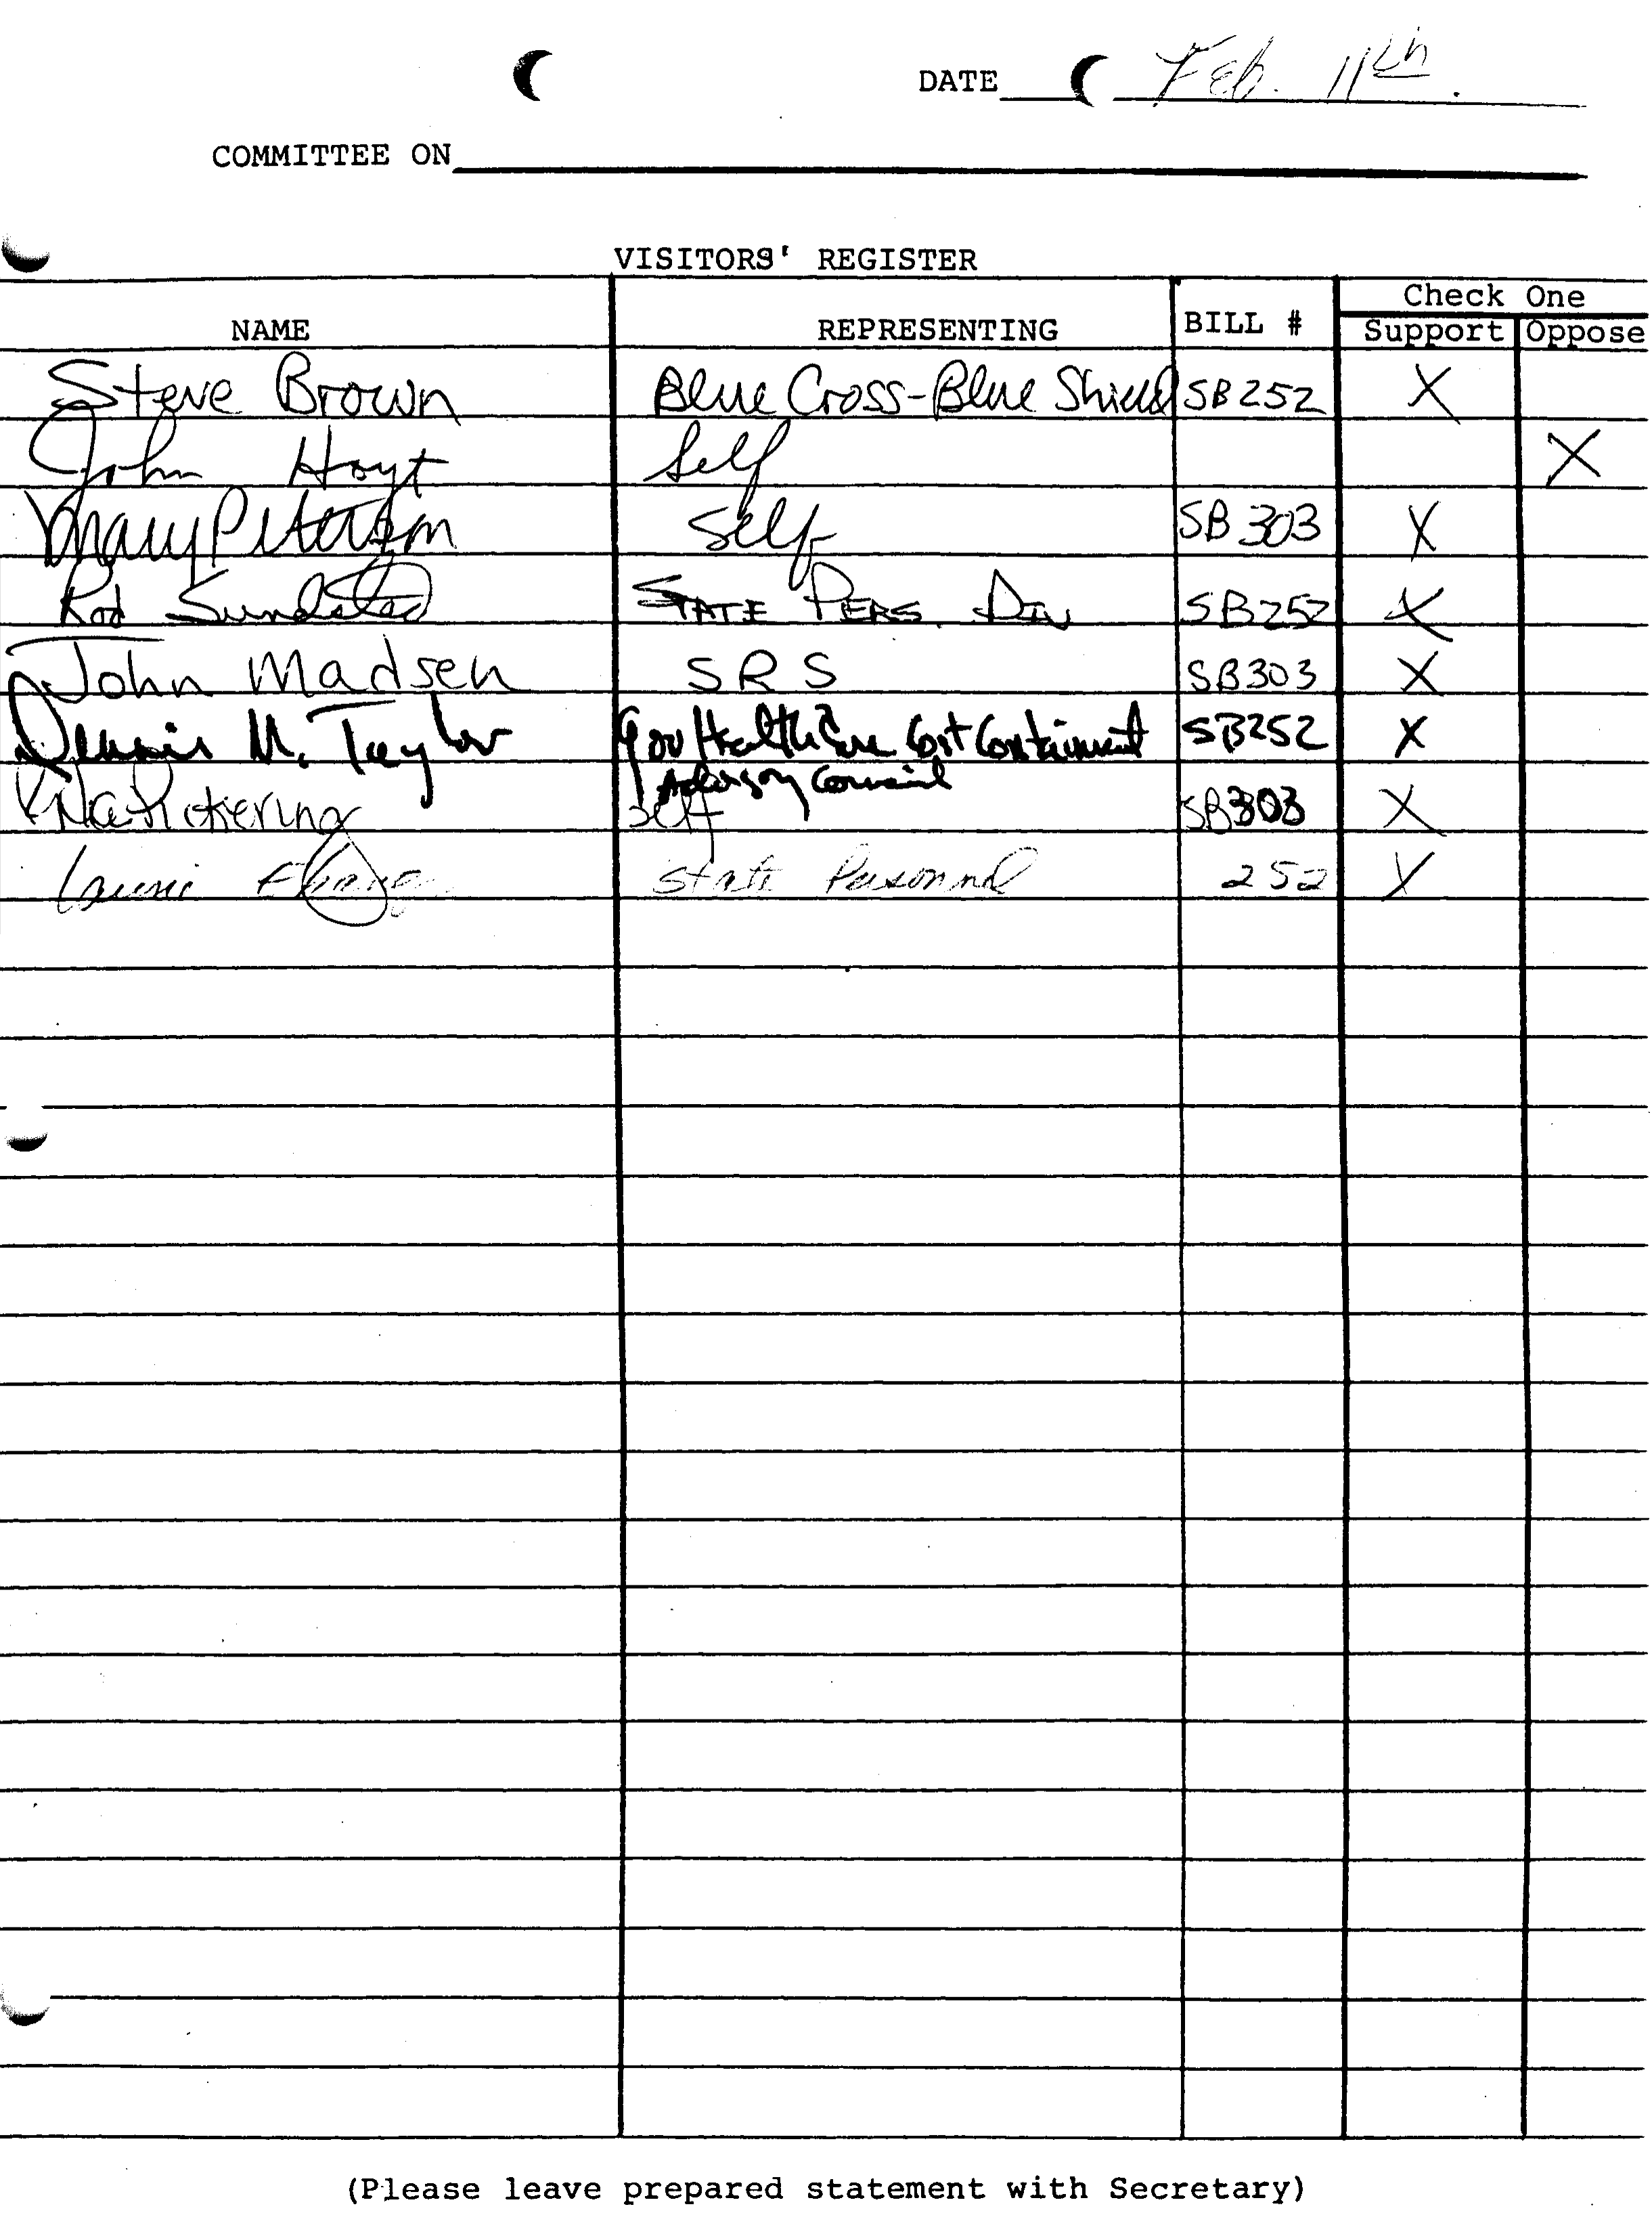 DATE Feb. 11th.
COMMITTEE ON
VISITORS' REGISTER
Check One
NAME REPRESENTING BILL # Support Oppose
Steve Brown Blue Cross-Blue Shield SB252 X
John Hoyt Self X
Mary Peterson Self SB 303 X
Rod Sundsted STATE PERS. DIV SB252 X
John Madsen SRS SB303 X
Dennis M. Taylor Gov Health Care Cost Containment SB252 X
Advisory Council
Pickering Self SB303 X
Laurie State Personnel 252 X
(Please leave prepared statement with Secretary)